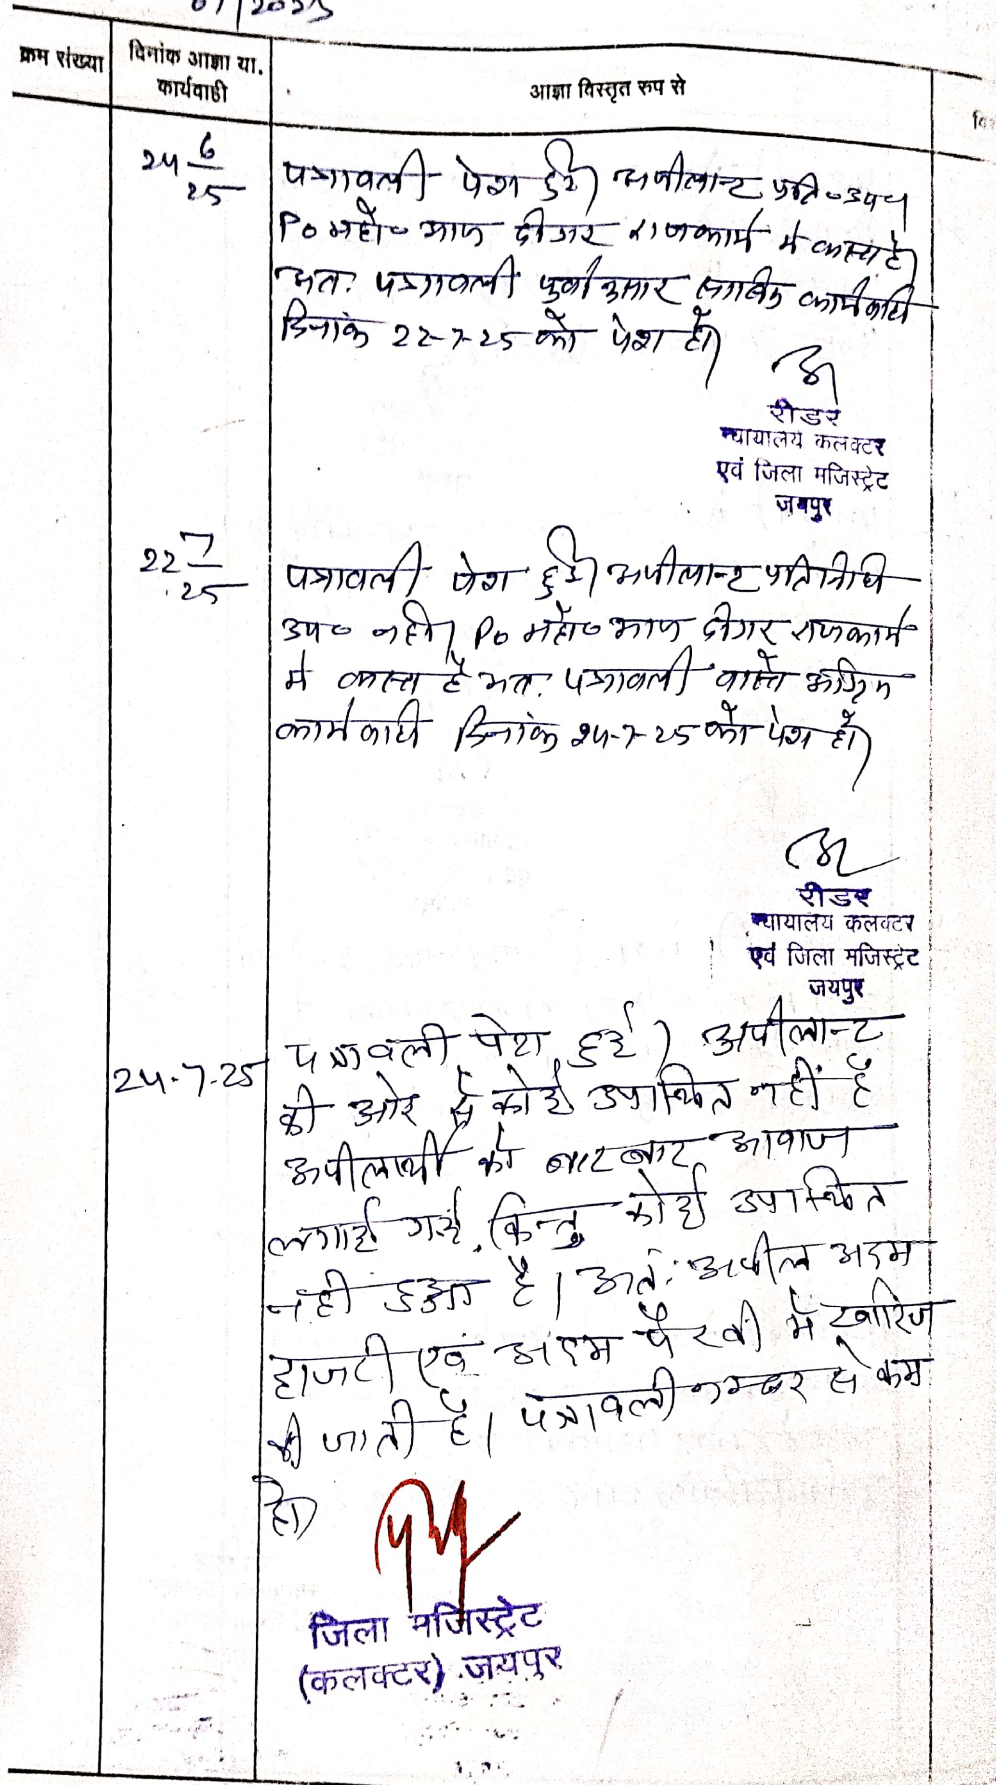 07/2025
क्रम संख्या
दिनांक आज्ञा या.
कार्यवाही
आज्ञा विस्तृत रुप से
24 6/25
पत्रावली पेश हुई। अपीलान्ट प्रति० उप०
Po महो० आज दीगर राजकार्य में व्यस्त है।
अतः पत्रावली पूर्वानुसार कार्यवाही
दिनांक 22-7-25 को पेश हो।
रीडर
न्यायालय कलक्टर
एवं जिला मजिस्ट्रेट
जयपुर
22 7/25
पत्रावली पेश हुई। अपीलान्ट प्रतिनिधि
उप० नही। Po महो० आज दीगर राजकार्य
में व्यस्त है अतः पत्रावली वास्ते अग्रिम
कार्यवाही दिनांक 24-7-25 को पेश हो।
रीडर
न्यायालय कलक्टर
एवं जिला मजिस्ट्रेट
जयपुर
24-7-25
पत्रावली पेश हुई। अपीलान्ट
की ओर से कोई उपस्थित नहीं है
अपीलार्थी को बार बार आवाज
लगाई गई, किन्तु कोई उपस्थित
नही हुआ है। अतः अपील अदम
हाजरी एवं अदम पैरवी में खारिज
की जाती है। पत्रावली नम्बर से कम
हो।
जिला मजिस्ट्रेट
(कलक्टर) जयपुर